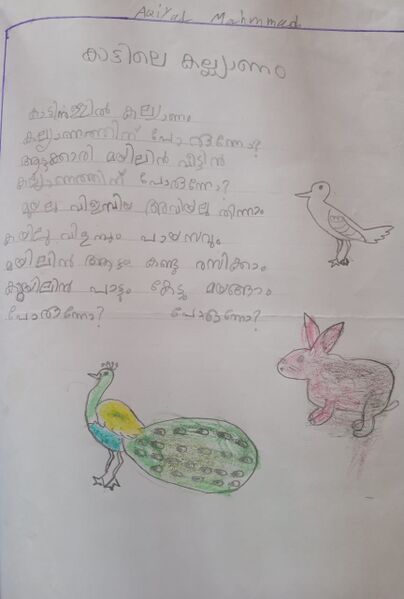 കാട്ടിലെ കല്ല്യാണം
കാടിനുള്ളിൽ കല്യാണം
കല്ല്യാണത്തിന് പോരുന്നോ?
ആട്ടക്കാരി മയിലിൻ വീട്ടിൻ
കല്ല്യാണത്തിന് പോരുന്നോ?
മുയല് വിളമ്പിയ അവിയലു തിന്നാം
കുയിലു വിളമ്പും പായസവും
മയിലിൻ ആട്ടം കണ്ടു രസിക്കാം
കുയിലിൻ പാട്ടും കേട്ടു മയങ്ങാം
പോരുന്നോ? പോരുന്നോ?